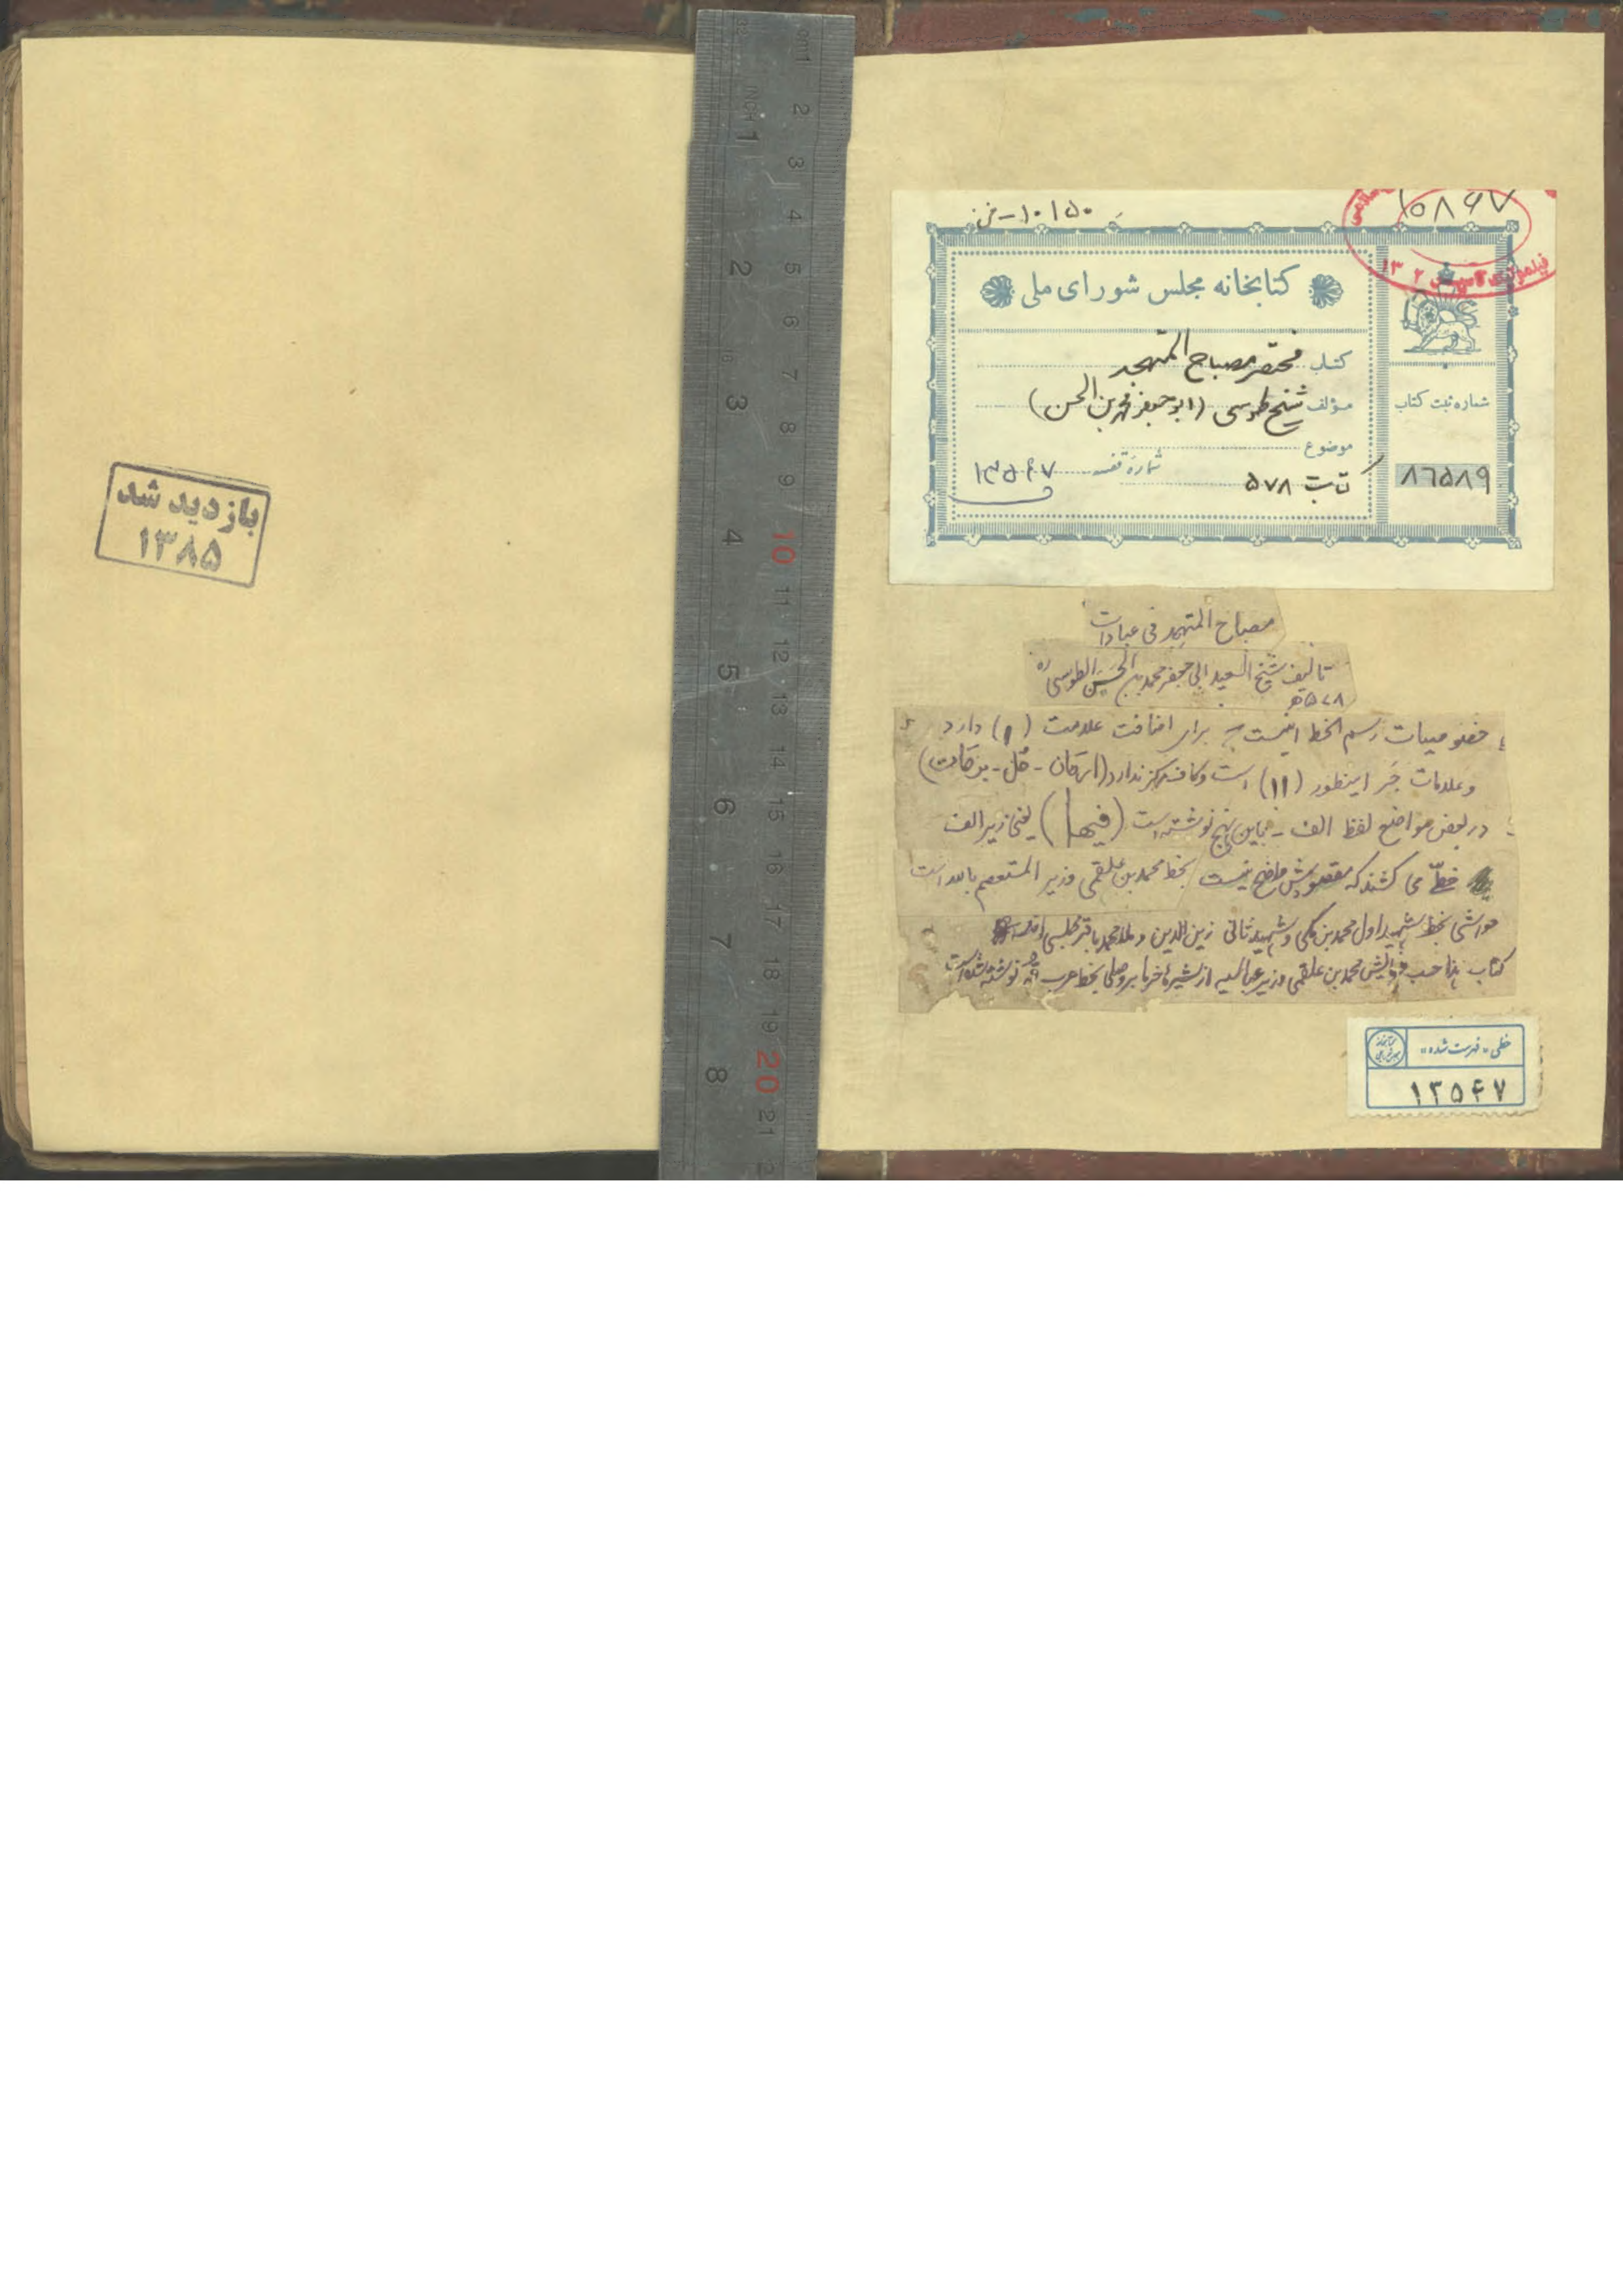 ۱۰۱۵۰-ض ز
۱۵۸۶۷
کتابخانه مجلس شورای ملی
کتاب مختصر مصباح المتهجد
مؤلف شیخ طوسی (ابوجعفر محمد بن الحسن)
موضوع
شماره ثبت کتاب
شماره قفسه ۱۳۵۶۷
کتابت ۵۷۸
۸۶۵۸۹
مصباح المتهجد فی عبادات
تألیف شیخ السعید ابی جعفر محمد بن الحسن الطوسی ره
۵۷۸ه
خصوصیات رسم الخط اینست که برای اضافت علامت (۱) دارد
وعلامات جر اینطور (۱۱) است و کاف مرکز ندارد (ارکان - کل - برکات)
در بعض مواضع لفظ الف - باین نهج نوشته است (فیها) یعنی زیر الف
خطّ می کشند که مقصودش واضح نیست بخط محمد بن علقمی وزیر المستعصم بالله است
حواشی بخط شهید اول محمد بن مکی و شهید ثانی زین الدین و ملا محمد باقر مجلسی
کتاب هذا حسب فرمایش محمد بن علقمی وزیر عباسیه از نوشته شده است
بازدید شد
۱۳۸۵
خطی «فهرست شده»
۱۳۵۶۷